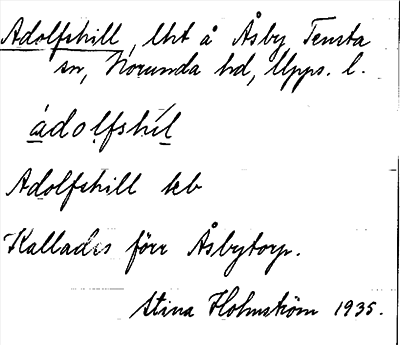 Adolfshill, lht å Åsby Tensta
sn, Norunda hd, Upps. l.
àdolfshíl
Adolfshill kb
Kallades förr Åsbytorp.
Stina Holmström 1935.